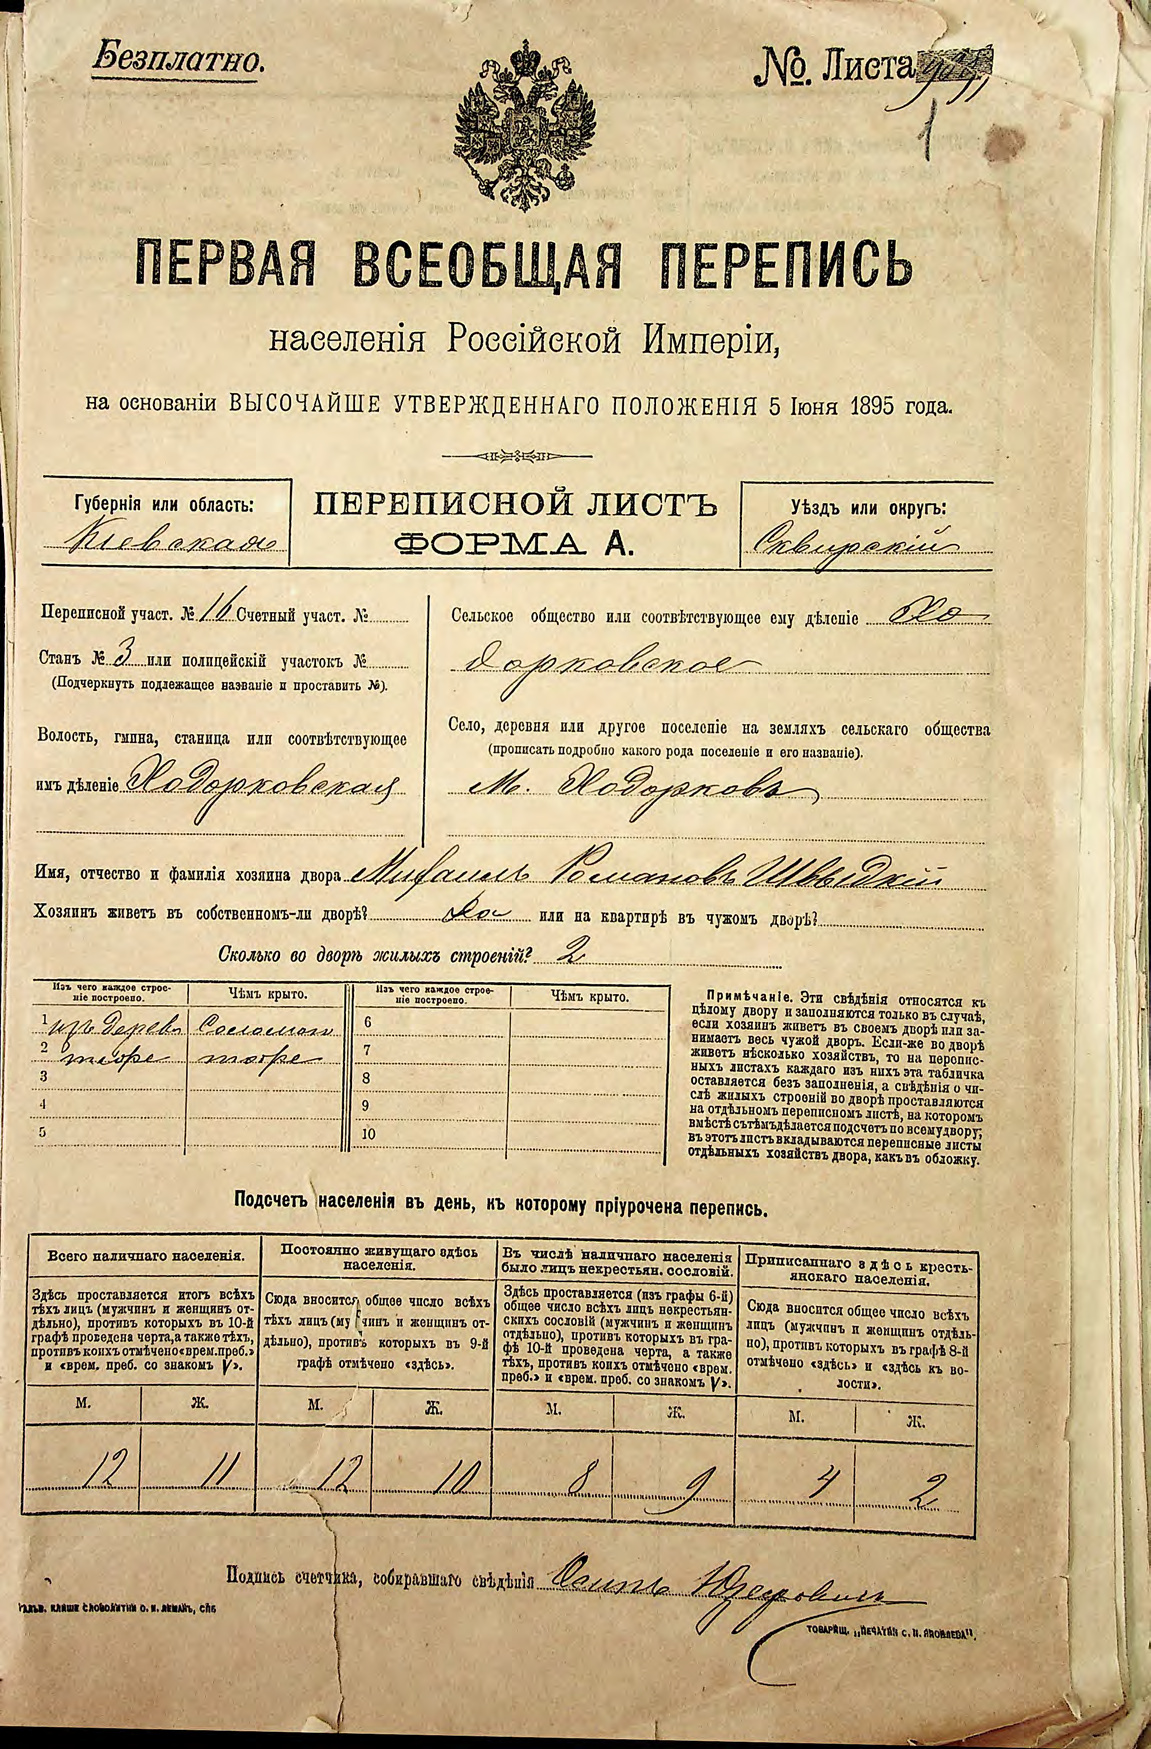 Безплатно.
№. Листа
1
ПЕРВАЯ ВСЕОБЩАЯ ПЕРЕПИСЬ
населенія Россійской Имперіи,
на основаніи ВЫСОЧАЙШЕ УТВЕРЖДЕННАГО ПОЛОЖЕНІЯ 5 Іюня 1895 года.
Губернія или область:
Кіевская
ПЕРЕПИСНОЙ ЛИСТЪ
ФОРМА А.
Уѣздъ или округъ:
Сквирскій
Переписной участ. № 16 Счетный участ. №
Станъ № 3 или полицейскій участокъ №
(Подчеркнуть подлежащее названіе и проставить №).
Волость, гмина, станица или соотвѣтствующее
имъ дѣленіе Ходорковская
Сельское общество или соотвѣтствующее ему дѣленіе Хо
дорковское
Село, деревня или другое поселеніе на земляхъ сельскаго общества
(прописать подробно какого рода поселеніе и его названіе).
М. Ходорковъ
Имя, отчество и фамилія хозяина двора Михаилъ Романовъ Швыдкій
Хозяинъ живетъ въ собственномъ-ли дворѣ? Да или на квартирѣ въ чужомъ дворѣ?
Сколько во дворѣ жилыхъ строеній? 2
Изъ чего каждое строе-
ніе построено.
Чѣмъ крыто.
Изъ чего каждое строе-
ніе построено.
Чѣмъ крыто.
1 изъ дерев Соломой 6
2 тоже тоже 7
3 8
4 9
5 10
Примѣчаніе. Эти свѣдѣнія относятся къ
цѣлому двору и заполняются только въ случаѣ,
если хозяинъ живетъ въ своемъ дворѣ или за-
нимаетъ весь чужой дворъ. Если-же во дворѣ
живетъ нѣсколько хозяйствъ, то на перепис-
ныхъ листахъ каждаго изъ нихъ эта табличка
оставляется безъ заполненія, а свѣдѣнія о чи-
слѣ жилыхъ строеній во дворѣ проставляются
на отдѣльномъ переписномъ листѣ, на которомъ
вмѣстѣ съ тѣмъ дѣлается подсчетъ по всему двору;
въ этотъ листъ вкладываются переписные листы
отдѣльныхъ хозяйствъ двора, какъ въ обложку.
Подсчетъ населенія въ день, къ которому пріурочена перепись.
Всего наличнаго населенія.
Здѣсь проставляется итогъ всѣхъ
тѣхъ лицъ (мужчинъ и женщинъ от-
дѣльно), противъ которыхъ въ 10-й
графѣ проведена черта, а также тѣхъ,
противъ коихъ отмѣчено «врем. преб.»
и «врем. преб. со знакомъ V».
Постоянно живущаго здѣсь
населенія.
Сюда вносится общее число всѣхъ
тѣхъ лицъ (му чинъ и женщинъ от-
дѣльно), противъ которыхъ въ 9-й
графѣ отмѣчено «здѣсь».
Въ числѣ наличнаго населенія
было лицъ некрестьян. сословій.
Здѣсь проставляется (изъ графы 6-й)
общее число всѣхъ лицъ некрестьян-
скихъ сословій (мужчинъ и женщинъ
отдѣльно), противъ которыхъ въ гра-
фѣ 10-й проведена черта, а также
тѣхъ, противъ коихъ отмѣчено «врем.
преб.» и «врем. преб. со знакомъ V».
Приписаннаго здѣсь кресть-
янскаго населенія.
Сюда вносится общее число всѣхъ
лицъ (мужчинъ и женщинъ отдѣль-
но), противъ которыхъ въ графѣ 8-й
отмѣчено «здѣсь» и «здѣсь къ во-
лости».
М. Ж. М. Ж. М. Ж. М. Ж.
12 11 12 10 8 9 4 2
Подпись счетчика, собиравшаго свѣдѣнія Осипъ
ГАЛЬВ. КЛИШЕ СЛОВОЛИТНИ О. И. ЛЕМАНЪ, СПБ
ТОВАРИЩ. „ПЕЧАТНИ С. П. ЯКОВЛЕВА".